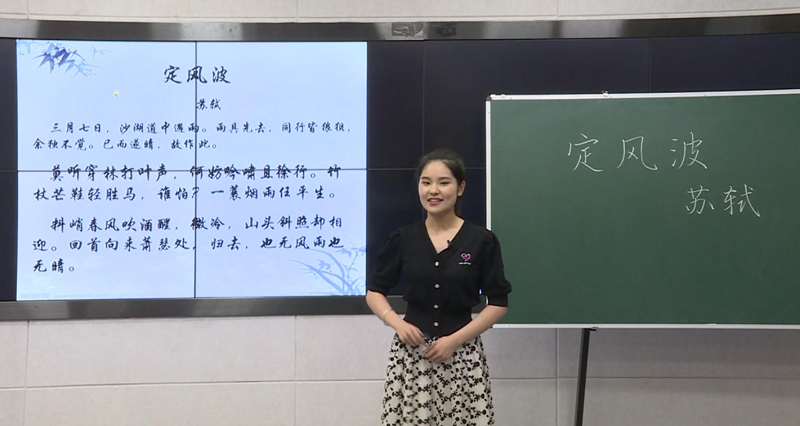 定风波
苏轼
三月七日，沙湖道中遇雨。雨具先去，同行皆狼狈，
余独不觉。已而遂晴，故作此。
莫听穿林打叶声，何妨吟啸且徐行。竹
杖芒鞋轻胜马，谁怕？一蓑烟雨任平生。
料峭春风吹酒醒，微冷，山头斜照却相
迎。回首向来萧瑟处，归去，也无风雨也
无晴。
定风波
苏轼